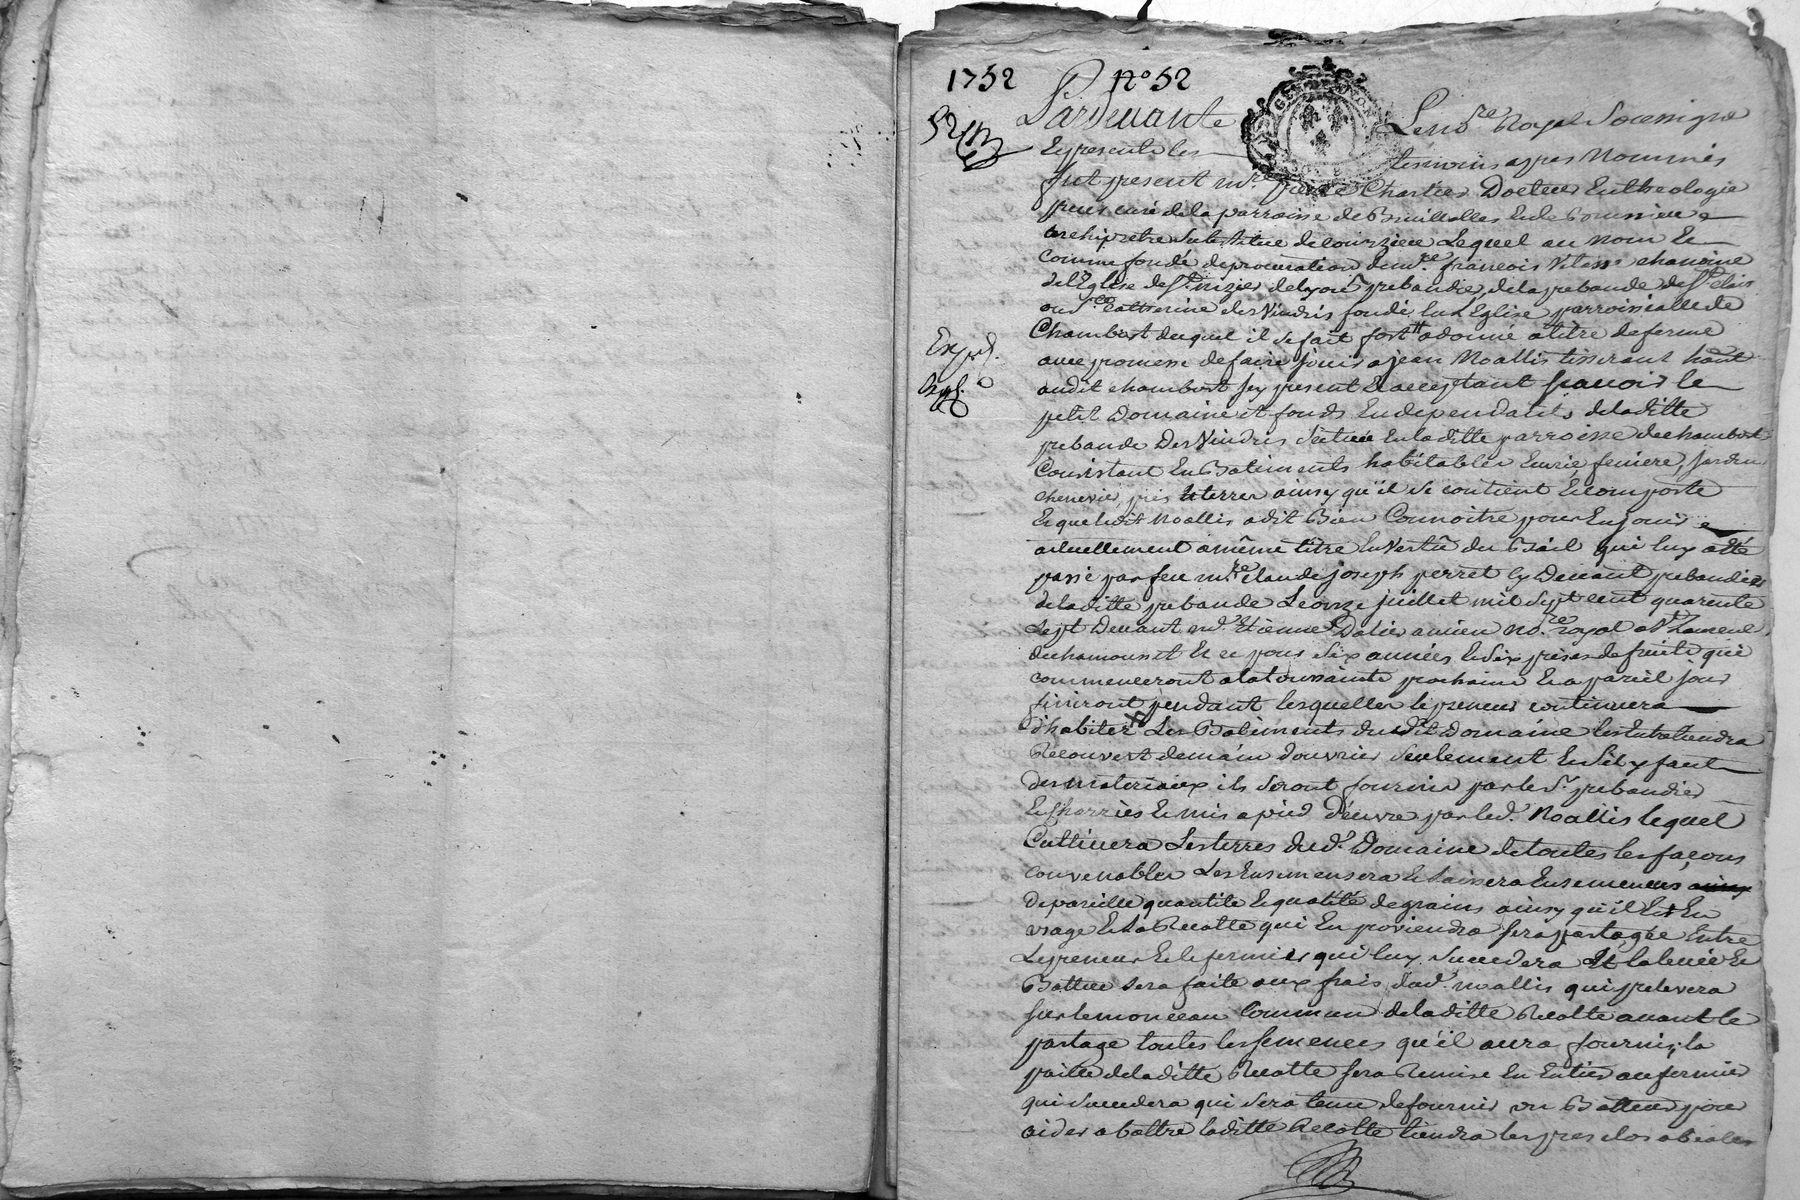 1752 N° 52
Pardevant Le no.re Royal Soussigné
Et presents les temoins apres Nommés
fut present m.re pierre Chartier Docteur En theologie
prieur curé de la parroisse de Brullioles Et de Boussieu
archiprêtre Substitué de courzieu Lequel au nom Et
comme fondé de procuration de m.re francois chanoine
de l'Eglise de S.t nizier de Lyon prebandier de la prebande de S.t Clair
ou S.te Catherine des Vindris fondé En L'Eglise parroissialle de
Chambost duquel il se fait fort a donné a titre de ferme
avec promesse de faire jouir a jean Noallis tisserant hant
audit chambost icy present Et acceptant sçavoir le
petit Domaine et fonds En dependants de laditte
prebande Des Vindris Située En laditte parroisse de chambost
Consistant En Batiments habitables Ecurie feniere, jardin
chenevier, prés Et terres ainsy qu'il Se contient Et comporte
Et que ledit Noallis a dit Bien Connoitre pour En jouir
actuellement a même titre En Vertû du Bail qui luy a été
passé par feu m.re claude joseph perret cy Devant prebandier
de laditte prebande Le onze juillet mil Sept cent quarente
Sept Devant m.e Etienne Dalier ancien no.re royal a S.t Laurent
de chamousset Et ce pour Six années Et Six prises de fruits qui
commenceront a la toussainte prochaine Et a pareil jour
finiront pendant lesquelles le preneur continuera
d'habiter Les Batiments dudit Domaine les Entretiendra
Recouvert de main d'ouvrier Seulement Et S'il y faut
des materiaux ils Seront fournis par le S.r prebandier
Et Charriés Et mis a pied d'œuvre par led. Noallis lequel
Cultivera Les terres dud. Domaine de toutes les façons
convenables Les Ensemensera Et Laissera Ensemencés
de pareille quantité Et qualité de grains ainsy qu'il Est En
usage Et La Recolte qui En proviendra sera partagée Entre
Le preneur Et le fermier qui luy Succedera Et la levée Et
Battue sera faite aux frais dud. noallis qui prelevera
sur le monceau Commun de laditte Recolte avant le
partage toutes les semences qu'il aura fournis, la
paille de laditte Recolte sera Remise En Entier au fermier
qui Succedera qui Sera tenu de fournir un Batteur pour
aider a battre laditte Recolte tiendra les prés clos